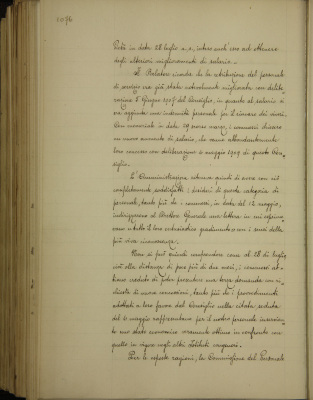 1096
in data 28 luglio a.c., intesi ad ottenere
degli ulteriori miglioramenti di salario.-
Il Relatore ricorda che la retribuzione del personale
di servizio era già stata notevolmente migliorata con delibe-
razione 5 Giugno del Consiglio, in quanto al salario si
era aggiunta una indennità personale per il rincaro dei viveri.
Con memoriale in data 29 marzo, i commessi chiesero
un nuovo aumento di salario, che venne
loro concesso con deliberazione 6 maggio 1909 di questo Con-
siglio.-
L'Amministrazione riteneva quindi di aver con ciò
completamente soddisfatti i desideri di questa categoria di
personale, tanto più che i commessi, in data del 12 maggio,
indirizzavano al Direttore Generale una lettera in cui esprime-
vano a tutto il loro entusiastico gradimento e con i sensi della
più viva riconoscenza.-
Non si può quindi comprendere come al 28 di luglio,
cioè alla distanza di poco più di due mesi, i commessi ab-
biano creduto di poter presentare una terza domanda con ri-
chiesta di nuove concessioni, tanto più che i provvedimenti
adottati a loro favore dal Consiglio nella citata seduta
del 6 maggio rappresentano per il nostro personale inservien-
te uno stato economico veramente ottimo in confronto con
quello in vigore negli altri Istituti congeneri.-
Per le esposte ragioni, la Commissione del Personale